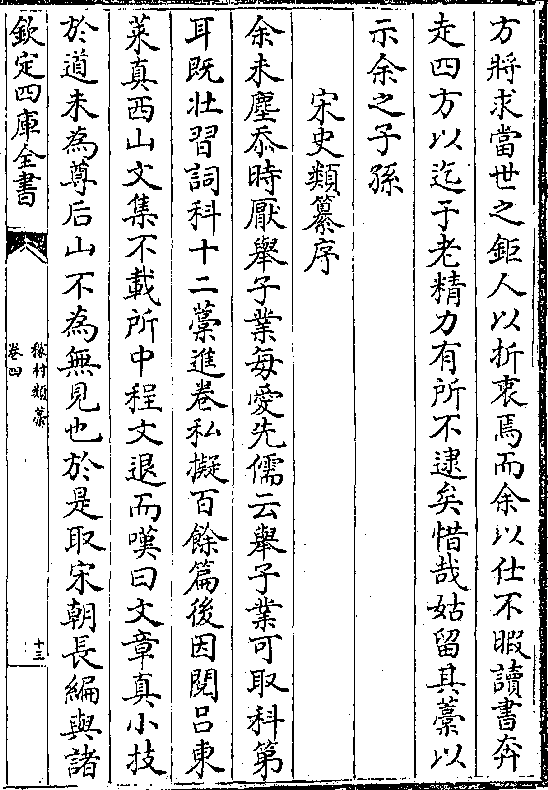 方將求當世之鉅人以折衷焉而余以仕不暇讀書奔
走四方以迄于老精力有所不逮矣惜哉姑留其藁以
示余之子孫
宋史類纂序
余未塵忝時厭舉子業每愛先儒云舉子業可取科第
耳既壯習詞科十二藁進卷私擬百餘篇後因閱吕東
萊真西山文集不載所中程文退而嘆曰文章真小技
於道未為尊后山不為無見也於是取宋朝長編與諸
欽定四庫全書
稼村類藁
卷四
十三